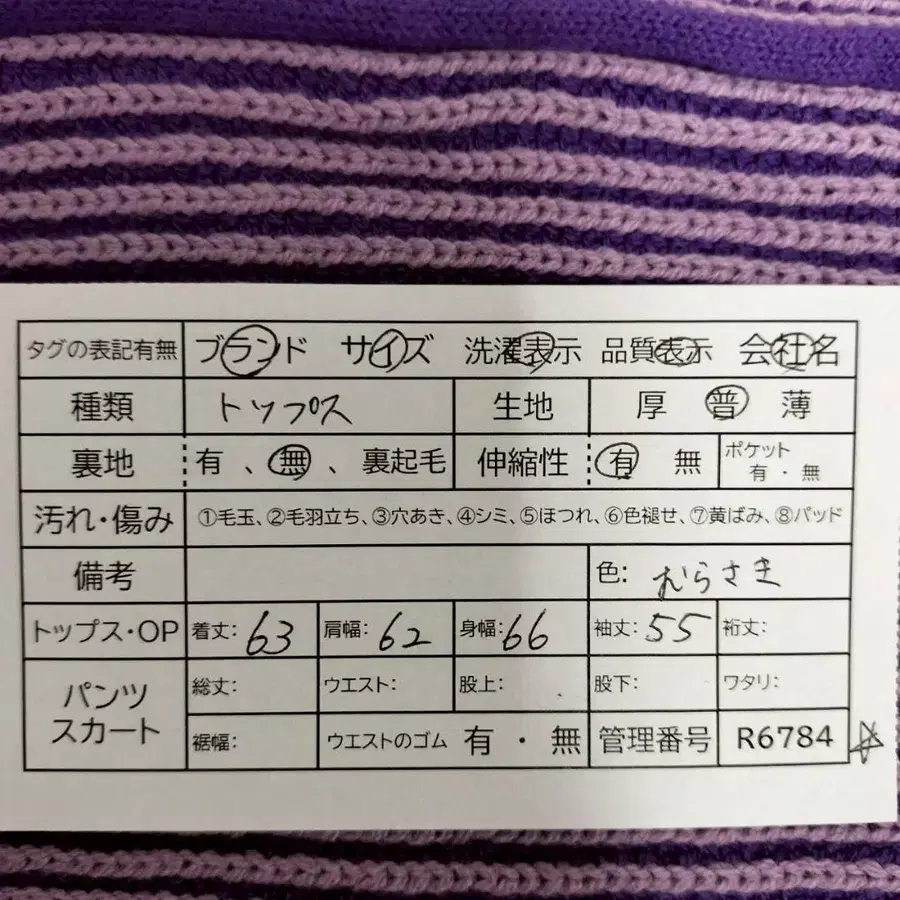 タグの表記有無 ブランド サイズ 洗濯表示 品質表示 会社名
種類 トップス 生地 厚 普 薄
裏地 有 、無 、裏起毛 伸縮性 有 無 ポケット 有・無
汚れ・傷み ①毛玉、②毛羽立ち、③穴あき、④シミ、⑤ほつれ、⑥色褪せ、⑦黄ばみ、⑧パッド
備考 色: むらさき
トップス・OP 着丈: 63 肩幅: 62 身幅: 66 袖丈: 55 裄丈:
パンツ スカート 総丈: ウエスト: 股上: 股下: ワタリ:
裾幅: ウエストのゴム 有・無 管理番号 R6784